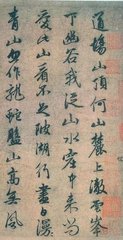 道場山頂何山麓上澈雲峯
下幽谷我從山水窟中來尚
愛此山看不足陂湖行盡白漫
青山忽作龍蛇盤山高無風